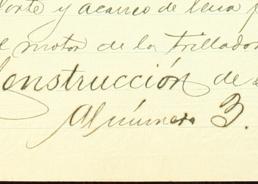 Corte y acarreo de leña p
el motor de la trillado
Construcción de
Al número 3.